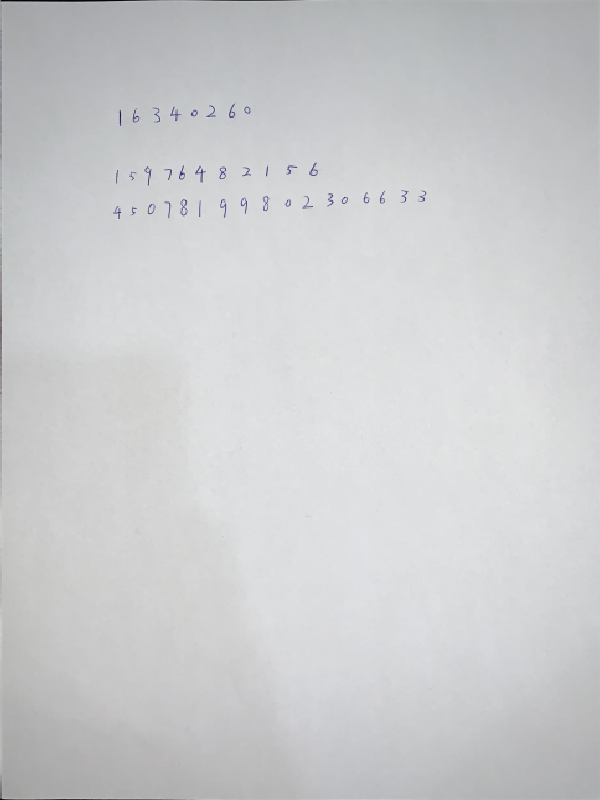 16340260
15976482156
45078199802306633